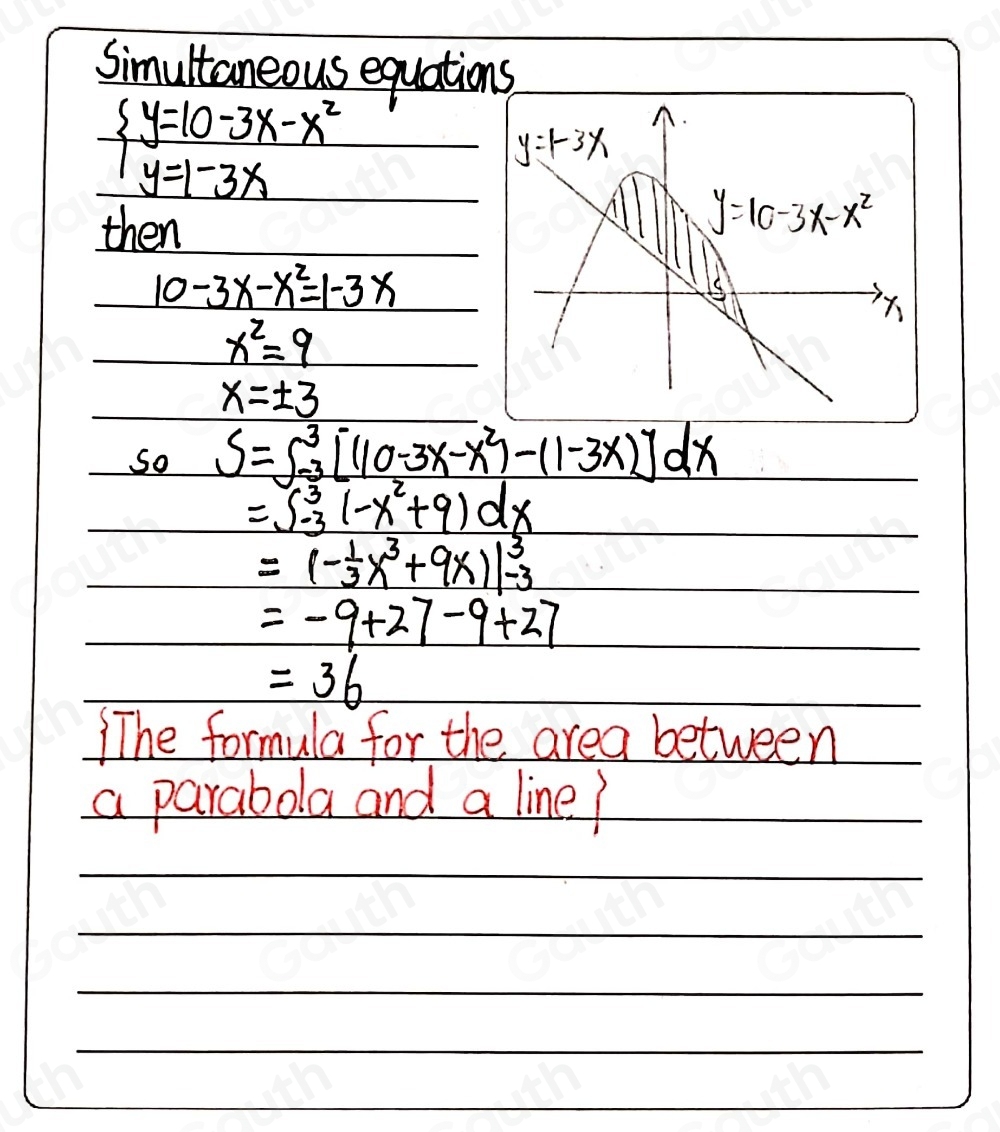 Simultaneous equations
{y=10-3x-x²
y=1-3x
then
10-3x-x²=1-3x
x²=9
x=±3
y=1-3x
y=10-3x-x²
S
x
so S=∫₋₃³[(10-3x-x²)-(1-3x)]dx
=∫₋₃³(-x²+9)dx
=(-1/3x³+9x)|₋₃³
=-9+27-9+27
=36
{The formula for the area between
a parabola and a line}
Gauth